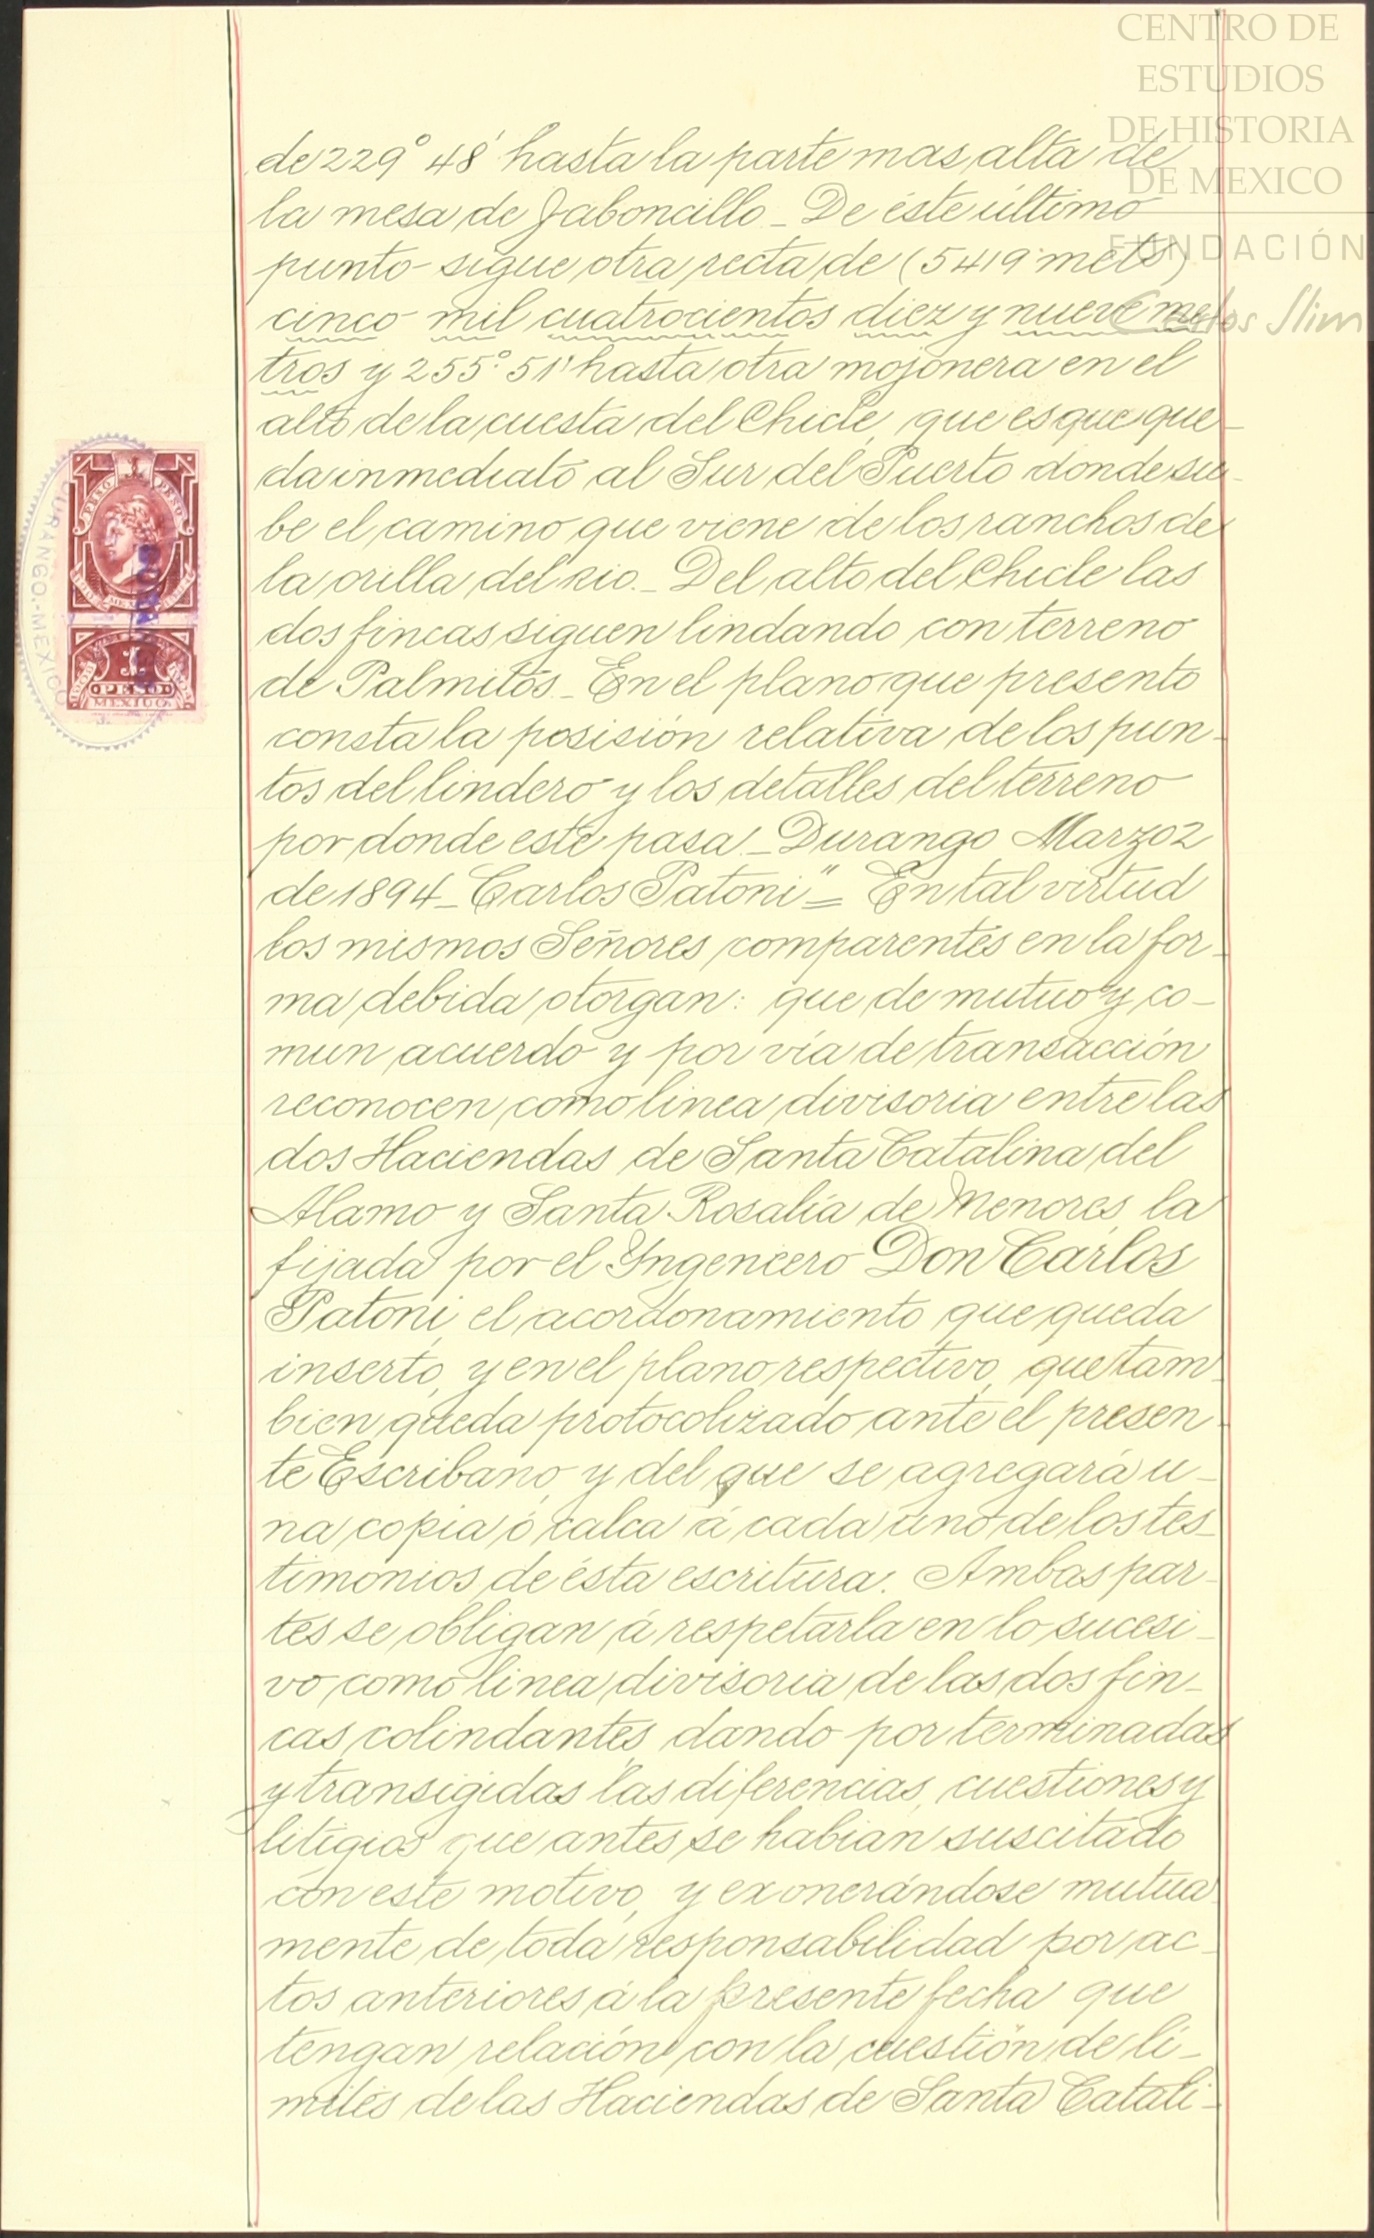 CENTRO DE
ESTUDIOS
DE HISTORIA
DE MEXICO
FUNDACIÓN
Carlos Slim
de 229° 48' hasta la parte mas alta de
la mesa de Jaboncillo _ De éste último
punto sigue otra recta de (5419 mets)
cinco mil cuatrocientos diez y nueve me
tros y 255° 51' hasta otra mojonera en el
alto de la cuesta del Chicle, que es que que_
da inmediato al Sur del Puerto donde su_
be el camino que viene de los ranchos de
la orilla del rio. _ Del alto del Chicle las
dos fincas siguen lindando con terreno
de Palmitos _ En el plano que presento
consta la posisión relativa de los pun_
tos del lindero y los detalles del terreno
por donde este pasa _ Durango Marzo 2
de 1894 _ Carlos Patoni" = En tal virtud
los mismos Señores comparentes en la for_
ma debida otorgan: que de mutuo y co_
mun acuerdo y por vía de transacción
reconocen como linea divisoria entre las
dos Haciendas de Santa Catalina del
Alamo y Santa Rosalía de Menores, la
fijada por el Yngeniero Don Carlos
Patoni, el acordonamiento que queda
inserto, y en el plano respectivo, que tam_
bien queda protocolizado ante el presen_
te Escribano, y del que se agregará u_
na copia ó calca á cada uno de los tes_
timonios de ésta escritura. Ambas par_
tes se obligan á respetarla en lo sucesi_
vo como linea divisoria de las dos fin_
cas colindantes, dando por terminadas
y transigidas las diferencias, cuestiones y
litigios que antes se habian suscitado
con este motivo, y exonerándose mutua
mente de toda responsabilidad por ac_
tos anteriores á la presente fecha que
tengan relación con la cuestión de lí_
mites de las Haciendas de Santa Catali_
PESO PESO
DURANGO.-MEXICO
1
PESO
MEXICO